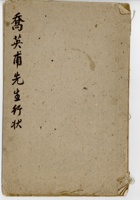 喬英甫先生行狀